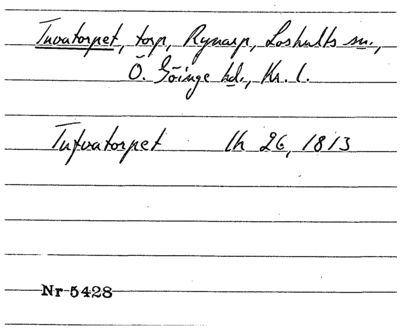 Tuvatorpet, torp, Rynarp, Loshults sn.,
Ö. Göinge hd., Kr. l.
Tufvatorpet lh 26, 1813
Nr 5428